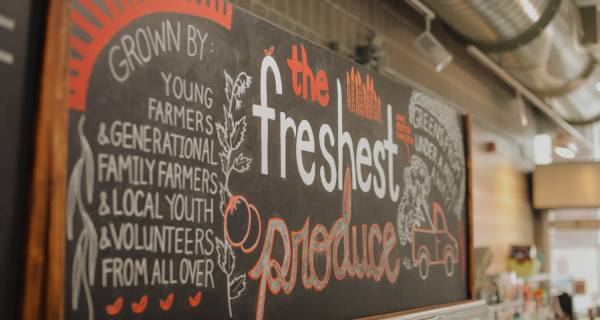 GROWN BY:
YOUNG
FARMERS
& GENERATIONAL
FAMILY FARMERS
& LOCAL YOUTH
& VOLUNTEERS
FROM ALL OVER
the
freshest
produce
GREENEST
UNDER